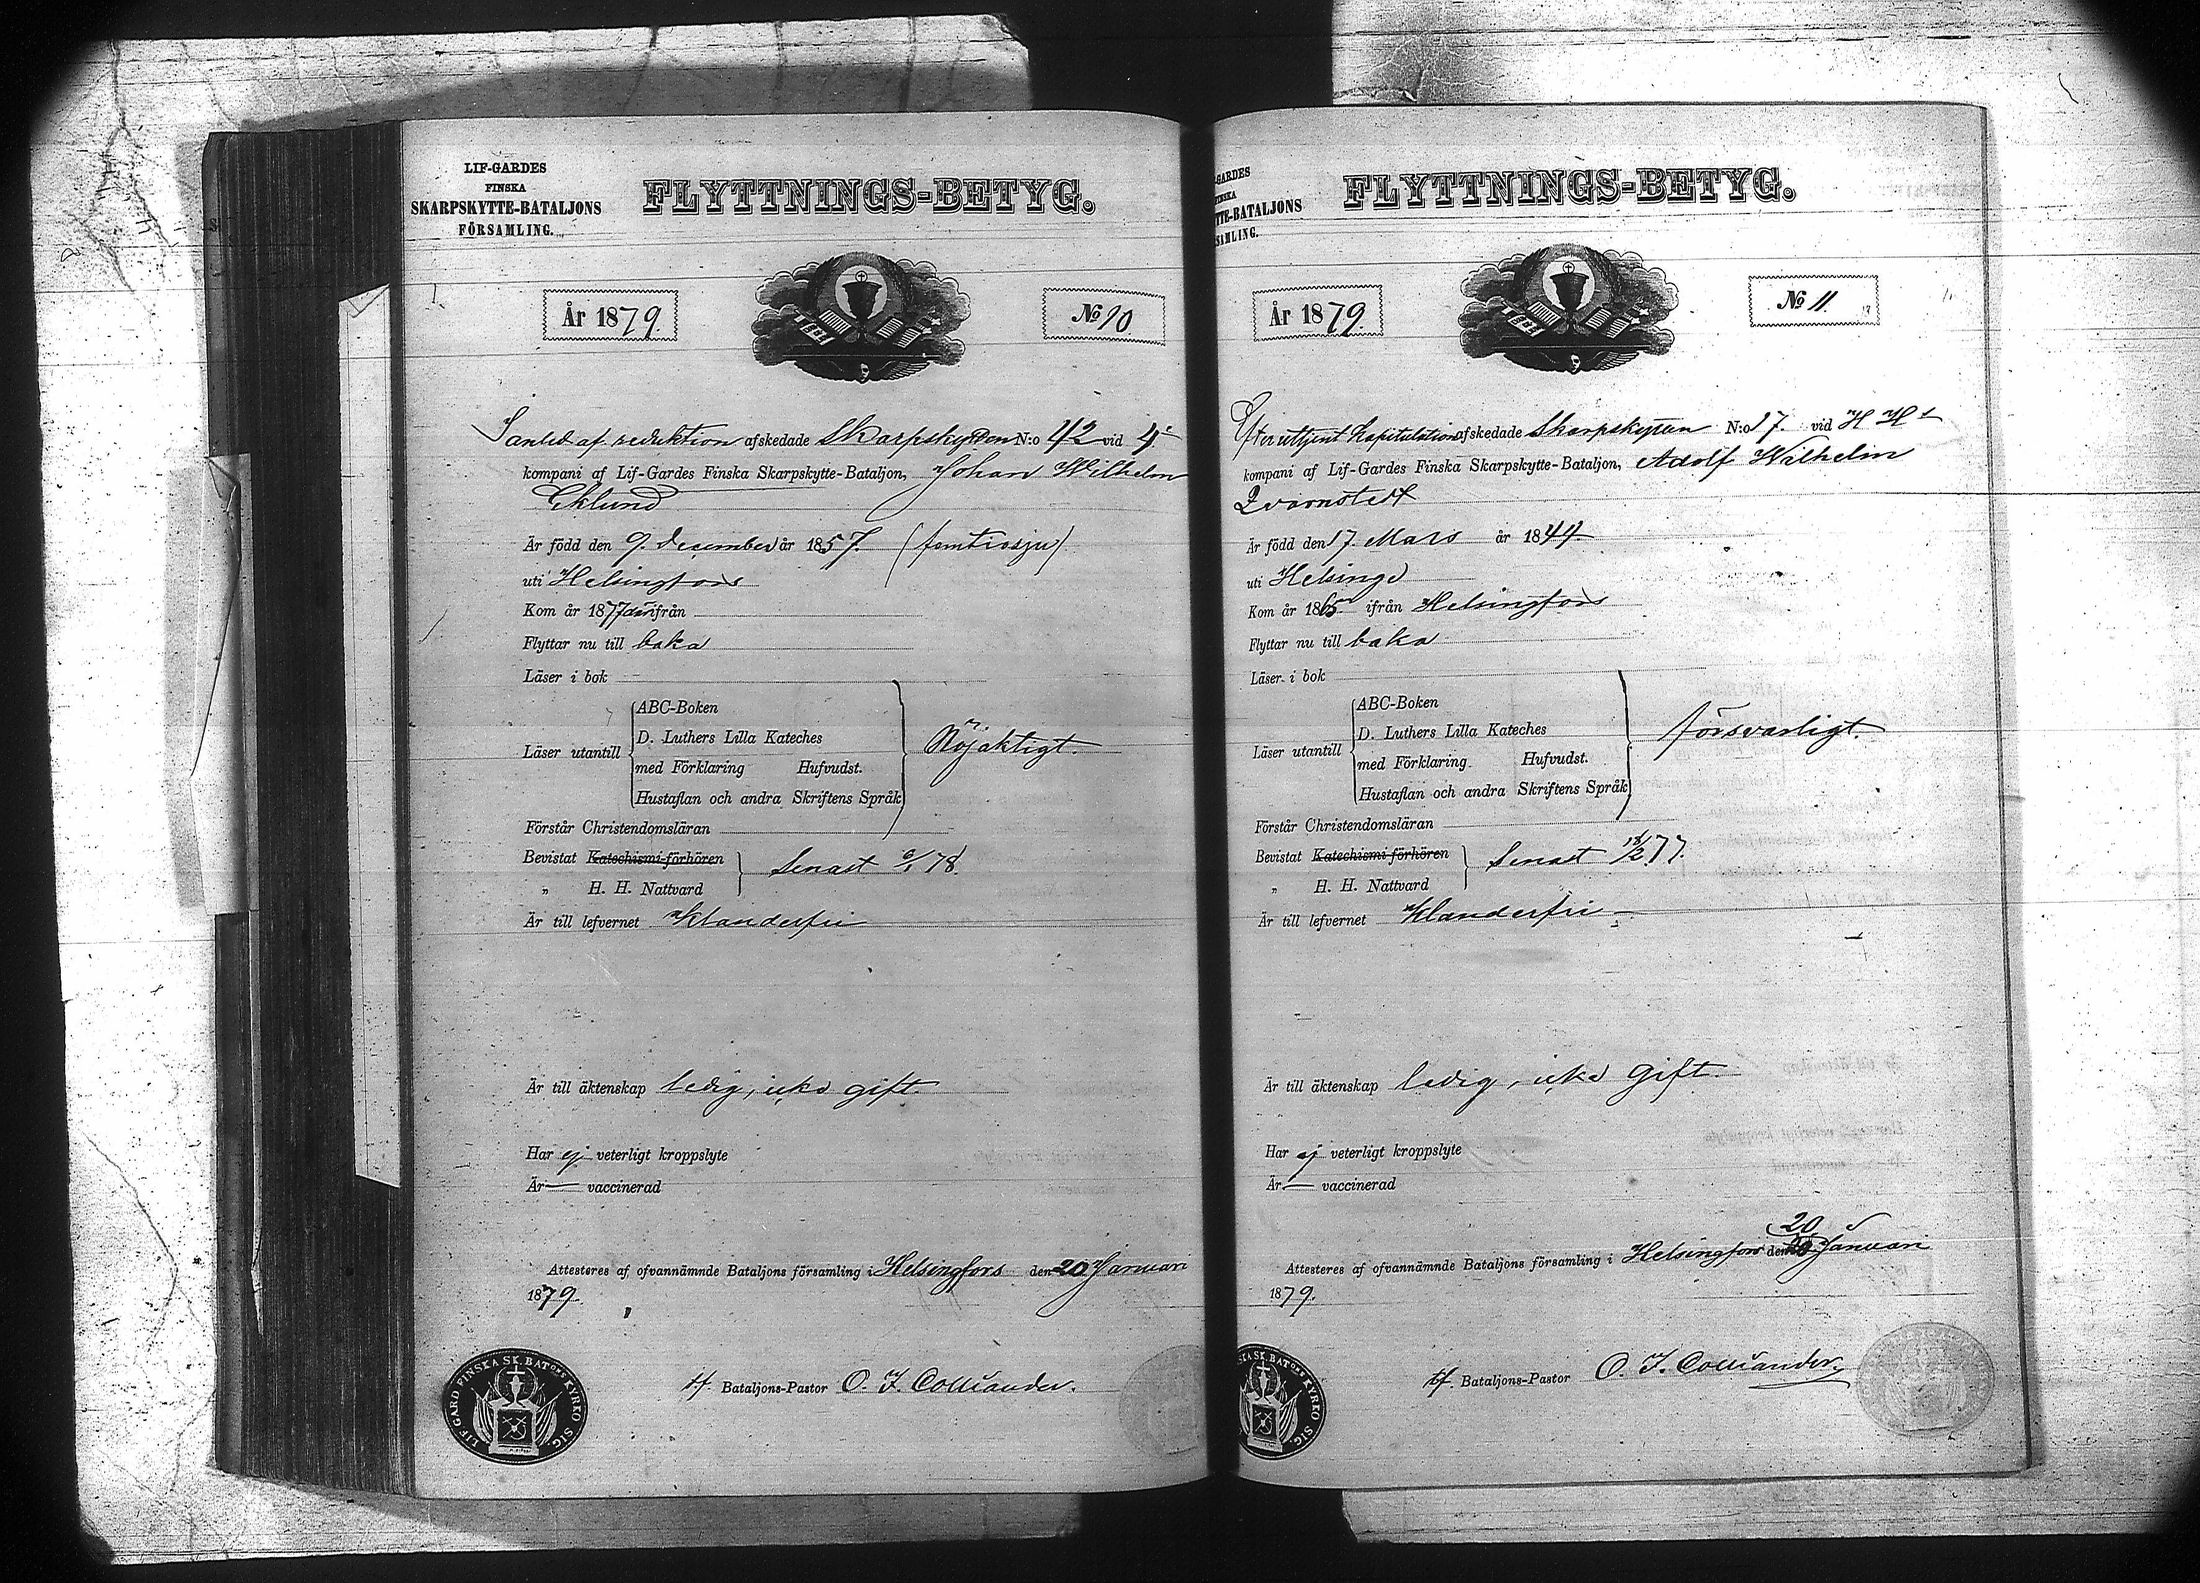 LIF-GARDES
FINSKA
SKARPSKYTTE-BATALJONS
FÖRSAMLING.
FLYTTNINGS-BETYG.
År 1879.
No 10.
I anled. af reduktion afskedade Skarpskytten N:o 42 vid 4e
kompani af Lif-Gardes Finska Skarpskytte-Bataljon, Johan Wilhelm
Eklund
Är född den 9. December år 1857. (femtiosju)
uti Helsingfors
Kom år 1877 ifrån
Flyttar nu till baka
Läser i bok
Läser utantill
ABC-Boken
D. Luthers Lilla Kateches
med Förklaring Hufvudst.
Hustaflan och andra Skriftens Språk
Nöjaktigt.
Förstår Christendomsläran
Bevistat Katechismi-förhören
„ H. H. Nattvard
Senast 78.
Är till lefvernet Klanderfri
Är till äktenskap ledig, icke gift.
Har ej veterligt kroppslyte
Är — vaccinerad
Attesteres af ofvannämnde Bataljons församling i Helsingfors den 20 Januari
1879.
LIF. GARD FINSKA SK. BATONS KYRKO SIG.
tf. Bataljons-Pastor O. F. Colliander.
-GARDES
TTE-BATALJONS
FLYTTNINGS-BETYG.
År 1879.
No 11.
Efter uttjent Kapitulation afskedade Skarpskytten N:o 17. vid H. H:s
kompani af Lif-Gardes Finska Skarpskytte-Bataljon, Adolf Wilhelm
Qvarnstedt
Är född den 17. Mars år 1844
uti Helsinge
Kom år 1865 ifrån Helsingfors
Flyttar nu till baka
Läser i bok
Läser utantill
ABC-Boken
D. Luthers Lilla Kateches
med Förklaring Hufvudst.
Hustaflan och andra Skriftens Språk
försvarligt.
Förstår Christendomsläran
Bevistat Katechismi-förhören
„ H. H. Nattvard
Senast 77.
Är till lefvernet Klanderfri
Är till äktenskap ledig, icke gift.
Har ej veterligt kroppslyte
Är — vaccinerad
20
Attesteres af ofvannämnde Bataljons församling i Helsingfors den Januari
1879.
SKA SK. BATONS KYRKO SIG.
tf. Bataljons-Pastor O. F. Colliander.